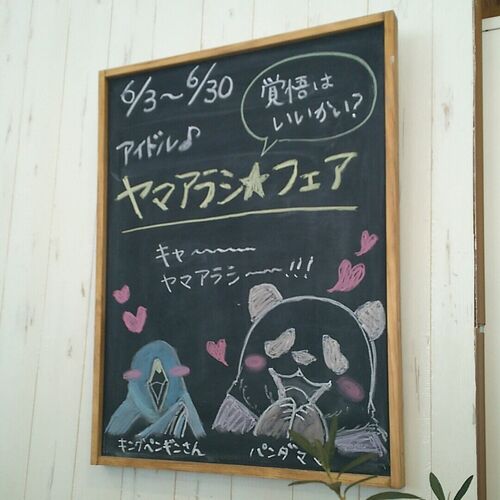 6/3～6/30
覚悟は
いいかい?
アイドル♪
ヤマアラシ★フェア
キャ〜〜
ヤマアラシ〜!!!
キングペンギンさん
パンダマ